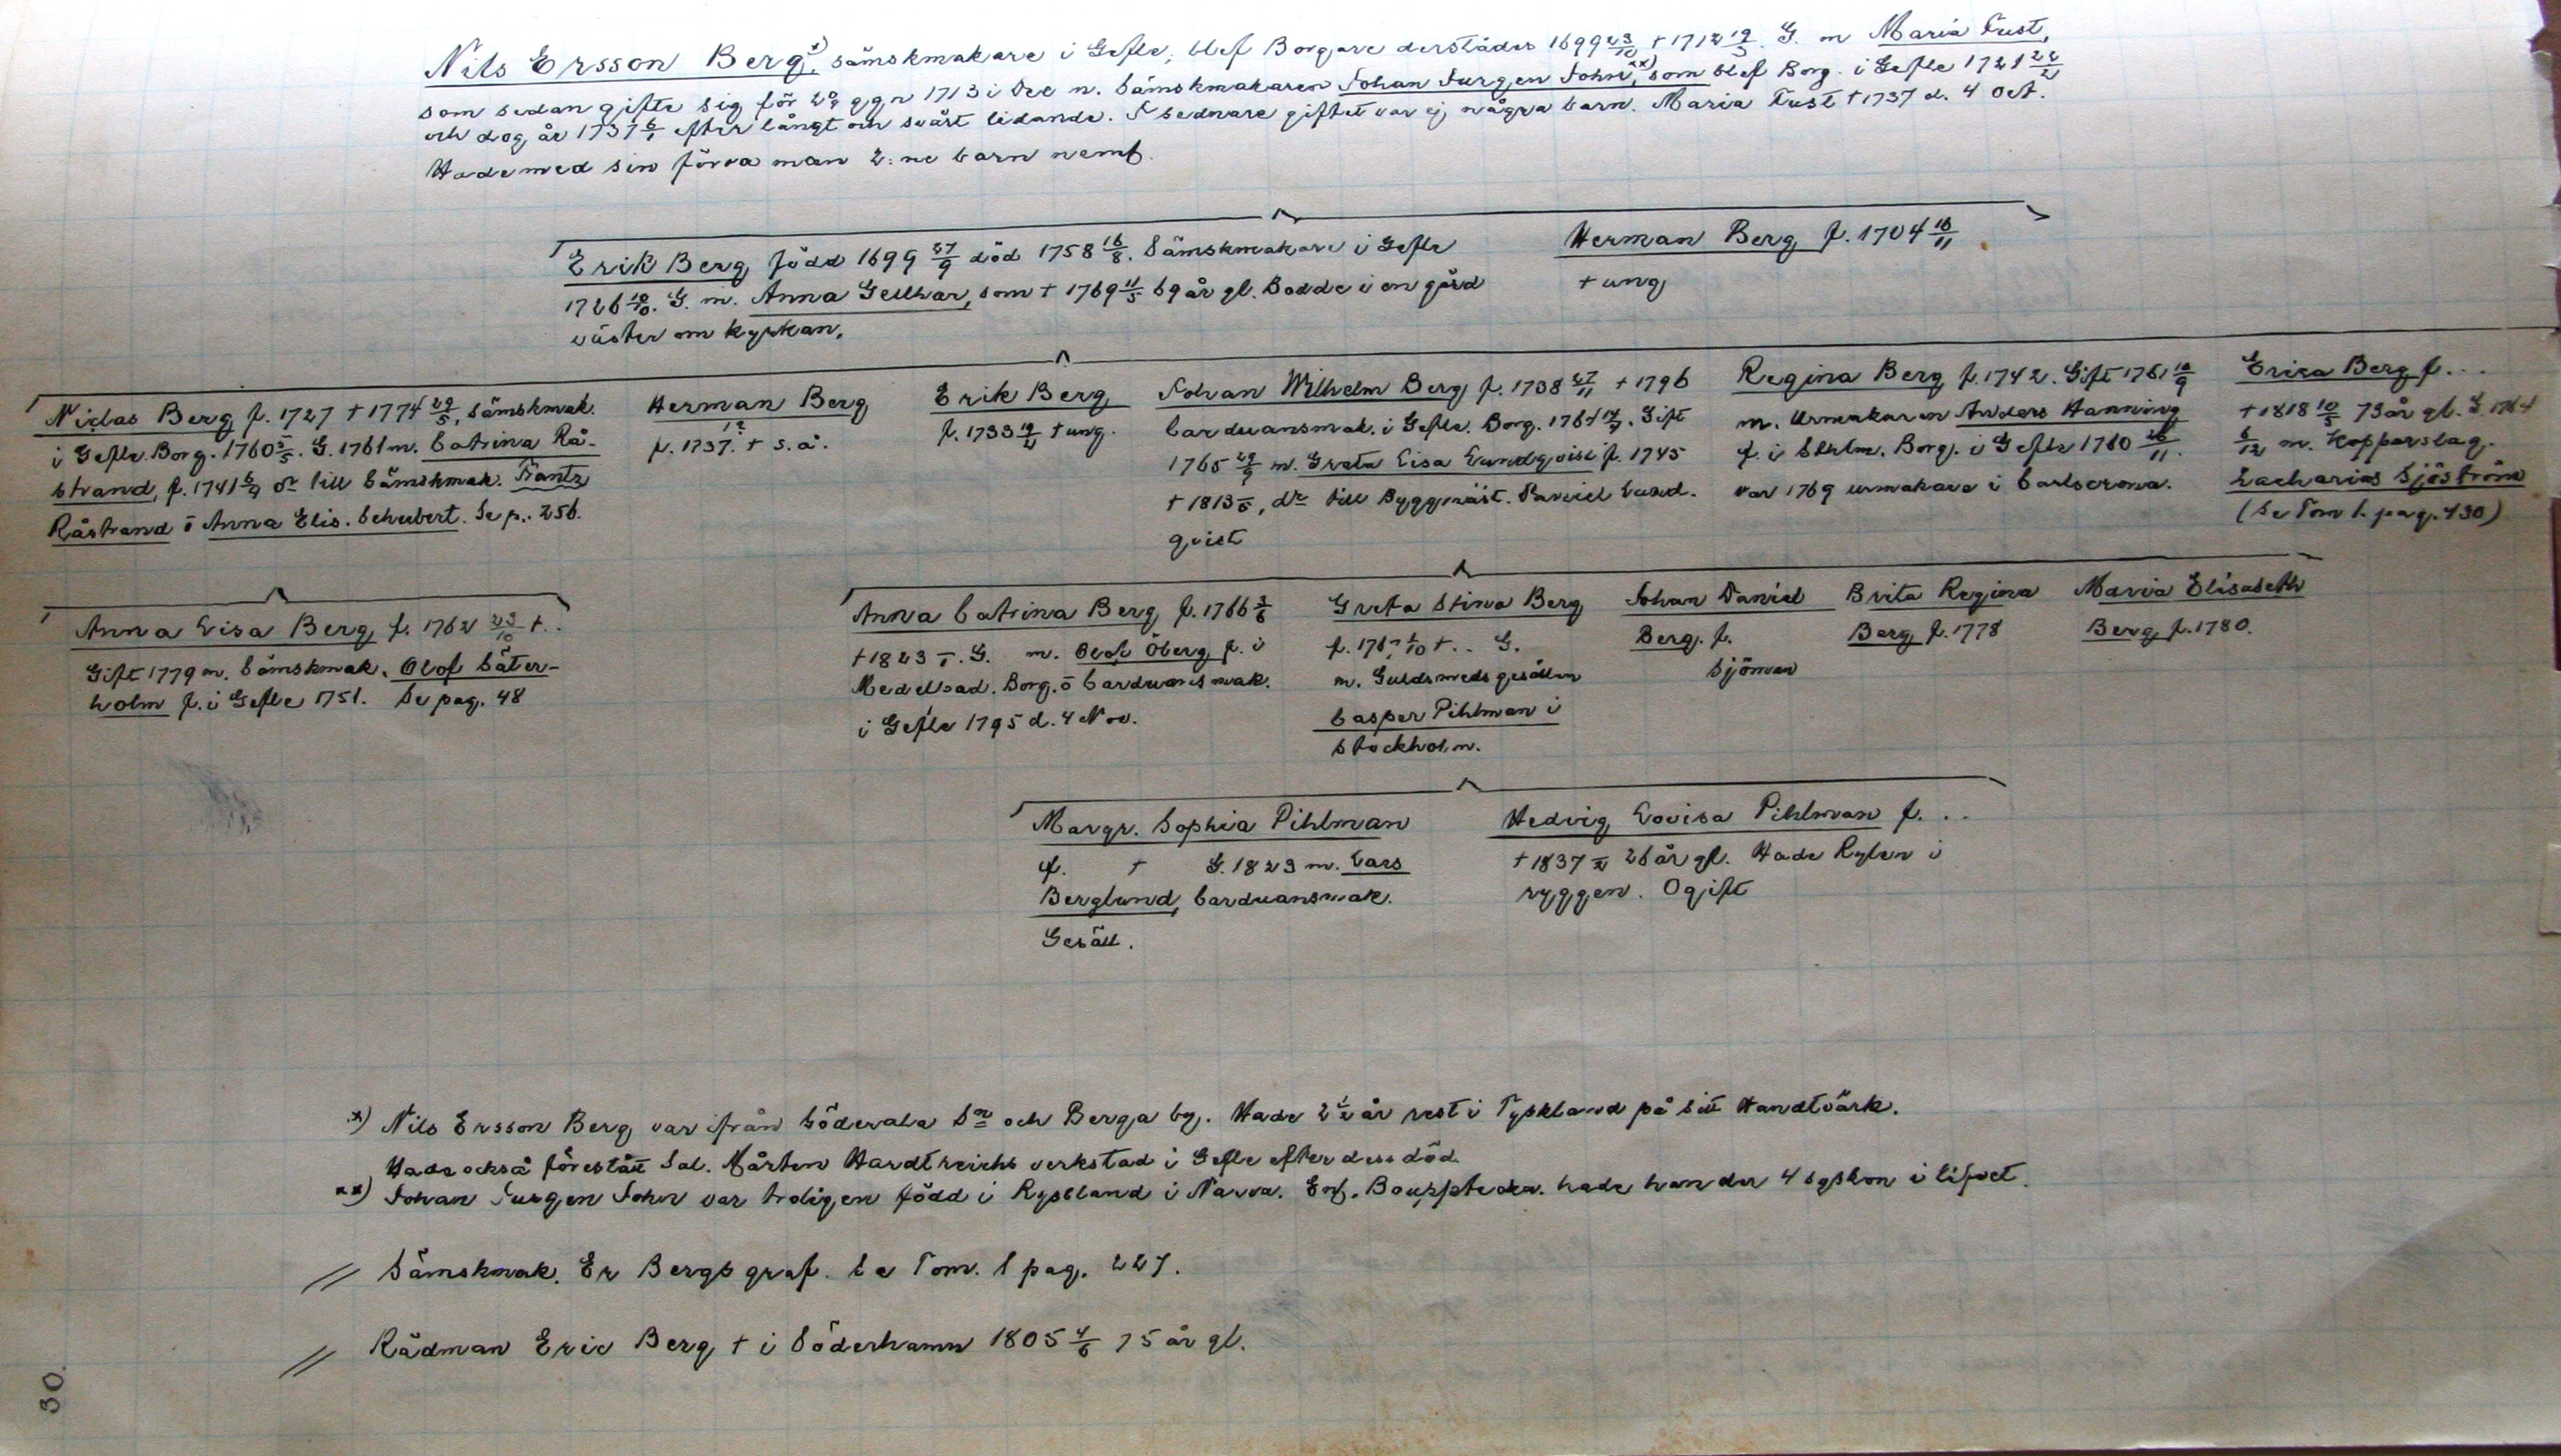 Nils Ersson Berg x), sämskmakare i Gefle, blef Borgare derstädes 1699 23/10 † 1712 19/3. G. m Maria Fust,
som sedan gifte sig för 2a ggn 1713 i Dec m. Sämskmakaren Johan Jurgen John xx), som blef Borg. i Gefle 1721 22/2
och dog år 1737 6/1 efter långt och svårt lidande. I sednare giftet var ej några barn. Maria Fust † 1737 d. 4 Oct.
Hade med sin förra man 2:ne barn neml.
Erik Berg född 1699 27/9 död 1758 16/8. Sämskmakare i Gefle
1726 10/10. G. m. Anna Gellhar, som † 1769 11/5 69 år gl. Bodde i en gård
väster om kyrkan.
Herman Berg f. 1704 16/11
† ung
Niclas Berg f. 1727 † 1774 29/5, Sämskmak.
i Gefle. Borg. 1760 5/5. G. 1761 m. Catrina Rå-
strand, f. 1741 6/4 dr till Sämskmak. Frantz
Råstrand o Anna Elis. Schubert. Se p. 256.
Herman Berg
f. 1737.? † s. å.
Erik Berg
f. 1733 19/2 † ung.
Johan Wilhelm Berg f. 1738 27/11 † 1796
Carduansmak. i Gefle. Borg. 1764 14/7. Gift
1765 29/9 m. Greta Lisa Lundqvist f. 1745
† 1813 –/5, dr till Byggmäst. Daniel Lund-
qvist
Regina Berg f. 1742. Gift 1761 10/9
m. Urmakaren Anders Hanning
f. i Sthlm. Borg. i Gefle 1760 26/11.
var 1769 urmakare i Carlscrona.
Erica Berg f. . .
† 1818 10/5 73 år gl. G. 1764
6/12 m. Kopparslag.
Zacharias Sjöström
(Se Tom 1. pag. 430)
Anna Lisa Berg f. 1762 23/10 †. .
Gift 1779 m. Sämskmak. Olof Säter-
holm f. i Gefle 1751. Se pag. 48
Anna Catrina Berg f. 1766 3/6
† 1823 –/1. G. m. Olof Öberg f. i
Medelpad. Borg. o Carduansmak.
i Gefle 1795 d. 4 Nov.
Greta Stina Berg
f. 1767 1/10 † . . G.
m. Guldsmedsgesällen
Casper Pihlman i
Stockholm.
Johan Daniel
Berg. f.
Sjöman
Brita Regina
Berg f. 1778
Maria Elisabeth
Berg f. 1780.
Margr. Sophia Pihlman
f. † G. 1823 m. Lars
Berglund, Carduansmak.
Gesäll.
Hedvig Lovisa Pihlman f. . .
† 1837 –/2 26 år gl. Hade Rylen i
ryggen. Ogift
x) Nils Ersson Berg var ifrån Söderala Sn och Berga by. Hade 2 1/2 år rest i Tyskland på sitt Handtvärk.
Hade också förestått Sal. Mårten Hardtreichs verkstad i Gefle efter dess död.
xx) Johan Jurgen John var troligen född i Ryssland i Narva. Enl. Bouppteckn. hade han der 4 syskon i lifvet.
// Sämskmak. Er Bergs graf. Se Tom. 1 pag. 227.
// Rådman Eric Berg † i Söderhamn 1805 4/6 75 år gl.
30.